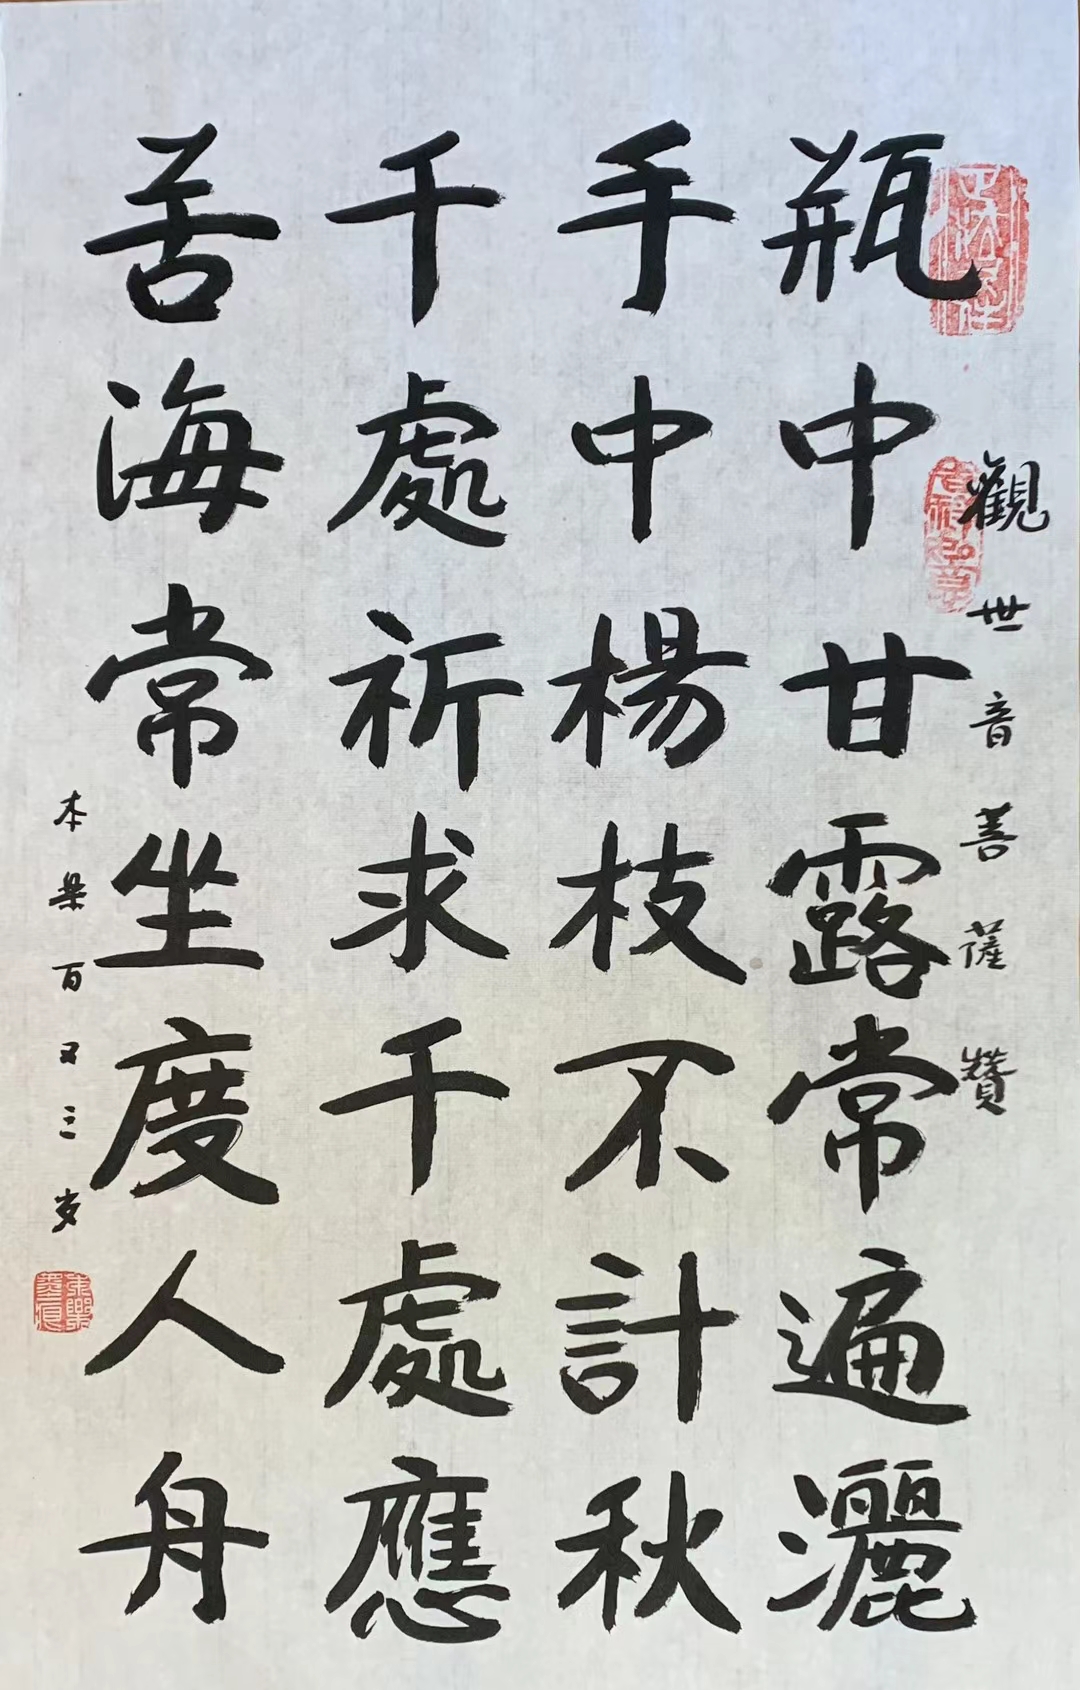 觀世音菩薩贊
瓶中甘露常遍灑
手中楊枝不計秋
千處祈求千處應
苦海常坐度人舟
本樂百又三岁